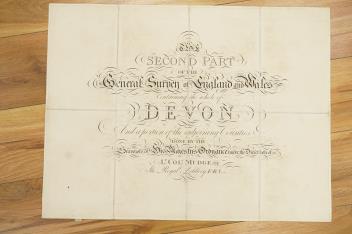 THE
SECOND PART
OF THE
General Survey of England and Wales
Containing the whole of
DEVON,
And a portion of the adjoining Counties
DONE BY THE
Surveyors of His Majesty's Ordnance under the Direction of
Lt. Col. MUDGE of
the Royal Artillery F.R.S.